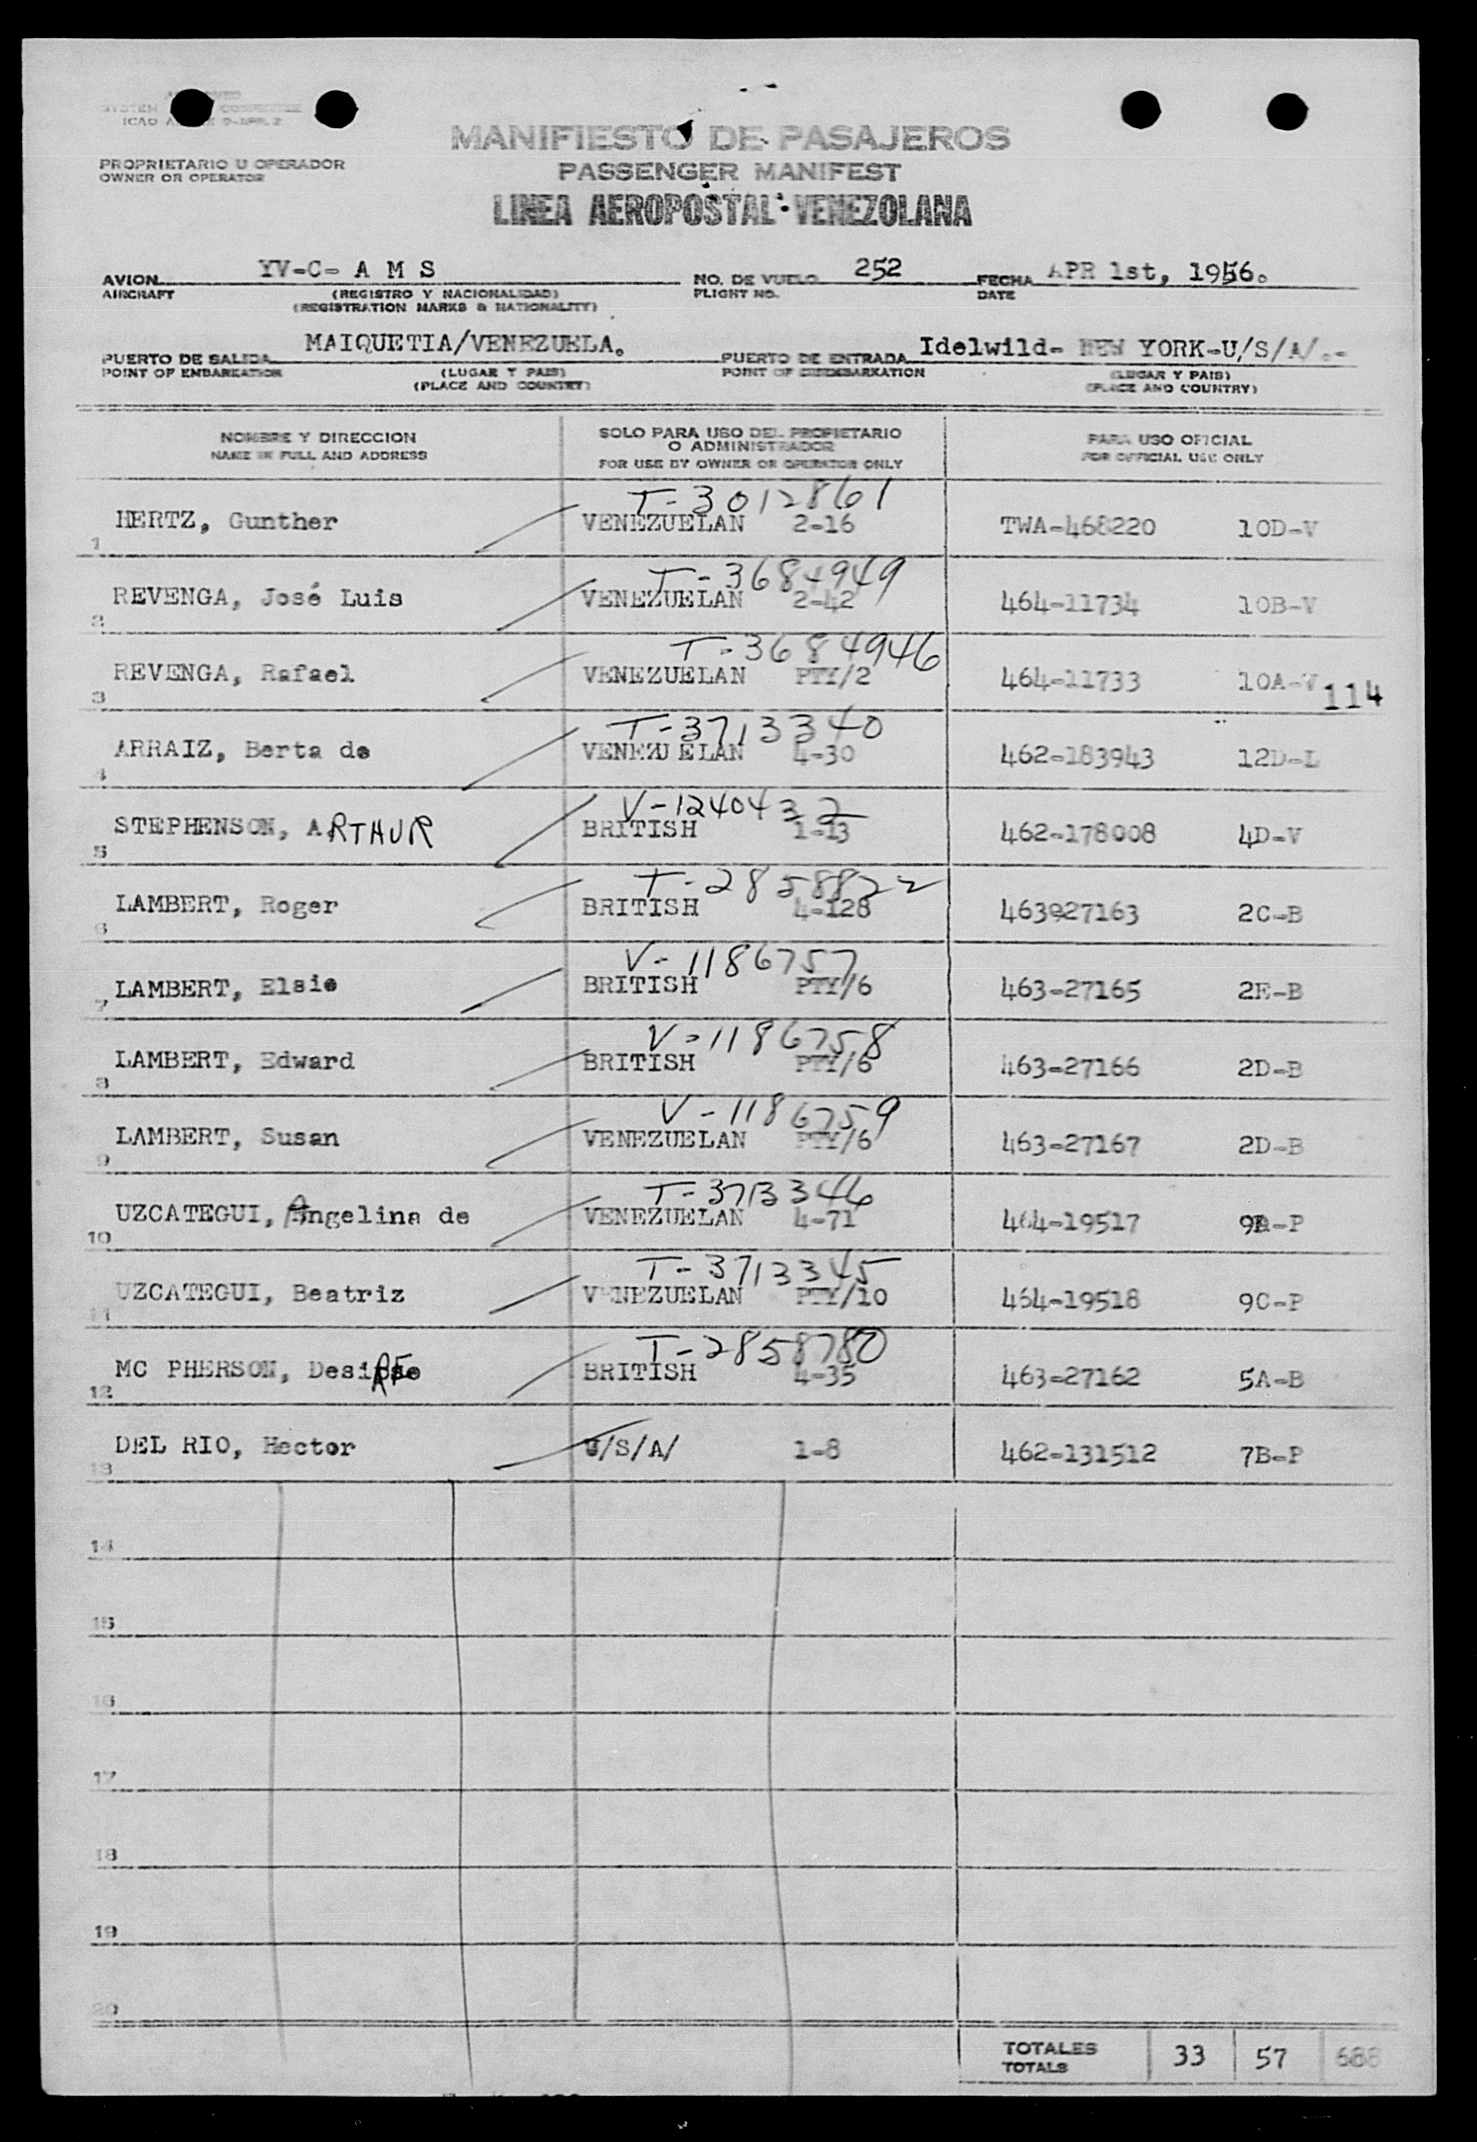 PROPRIETARIO U OPERADOR
OWNER OR OPERATOR
MANIFIESTO DE PASAJEROS
PASSENGER MANIFEST
LINEA AEROPOSTAL VENEZOLANA
AVION YV-C- A M S NO. DE VUELO 252 FECHA APR 1st, 1956.
AIRCRAFT (REGISTRO Y NACIONALIDAD) FLIGHT NO. DATE
(REGISTRATION MARKS & NATIONALITY)
PUERTO DE SALIDA MAIQUETIA/VENEZUELA. PUERTO DE ENTRADA Idelwild- NEW YORK-U/S/A/.-
POINT OF EMBARKATION (LUGAR Y PAIS) POINT OF DISEMBARKATION (LUGAR Y PAIS)
(PLACE AND COUNTRY) (PLACE AND COUNTRY)
NOMBRE Y DIRECCION SOLO PARA USO DEL PROPIETARIO O ADMINISTRADOR PARA USO OFICIAL
NAME IN FULL AND ADDRESS FOR USE BY OWNER OR OPERATOR ONLY FOR OFFICIAL USE ONLY
T-3012861
1 HERTZ, Gunther VENEZUELAN 2-16 TWA-468220 10D-V
T-3684949
2 REVENGA, José Luis VENEZUELAN 2-42 464-11734 10B-V
T-3684946
3 REVENGA, Rafael VENEZUELAN PTY/2 464-11733 10A-V 114
T-3713340
4 ARRAIZ, Berta de VENEZUELAN 4-30 462-183943 12D-L
V-1240432
5 STEPHENSON, ARTHUR BRITISH 1-13 462-178008 4D-V
T-2858822
6 LAMBERT, Roger BRITISH 4-128 463-27163 2C-B
V-1186757
7 LAMBERT, Elsie BRITISH PTY/6 463-27165 2E-B
V-1186758
8 LAMBERT, Edward BRITISH PTY/6 463-27166 2D-B
V-1186759
9 LAMBERT, Susan VENEZUELAN PTY/6 463-27167 2D-B
T-3713346
10 UZCATEGUI, Angelina de VENEZUELAN 4-71 464-19517 9D-P
T-3713345
11 UZCATEGUI, Beatriz VENEZUELAN PTY/10 464-19518 9C-P
T-2858780
12 MC PHERSON, Desiree BRITISH 4-35 463-27162 5A-B
13 DEL RIO, Hector U/S/A/ 1-8 462-131512 7B-P
14
15
16
17
18
19
20
TOTALES 33 57 688
TOTALS